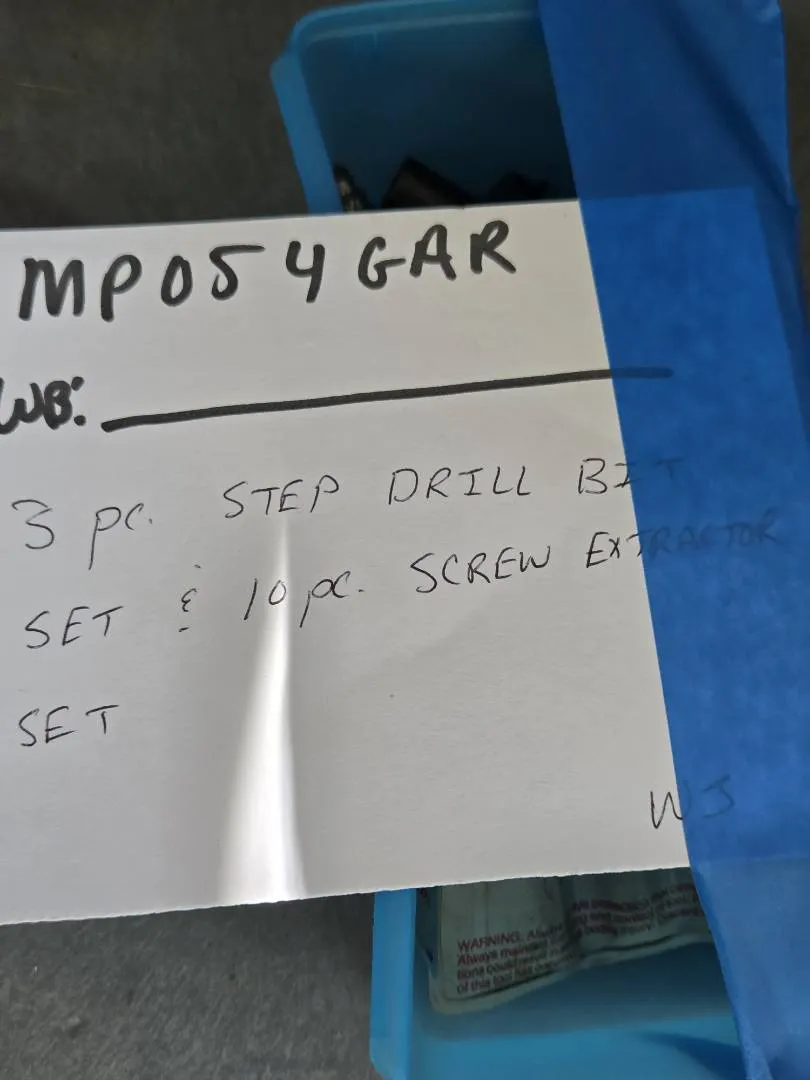 MP054GAR
WB:
3 pc. STEP DRILL BIT
SET & 10 pc. SCREW EXTRACTOR
SET
WJ
WARNING:
Always
of this tool